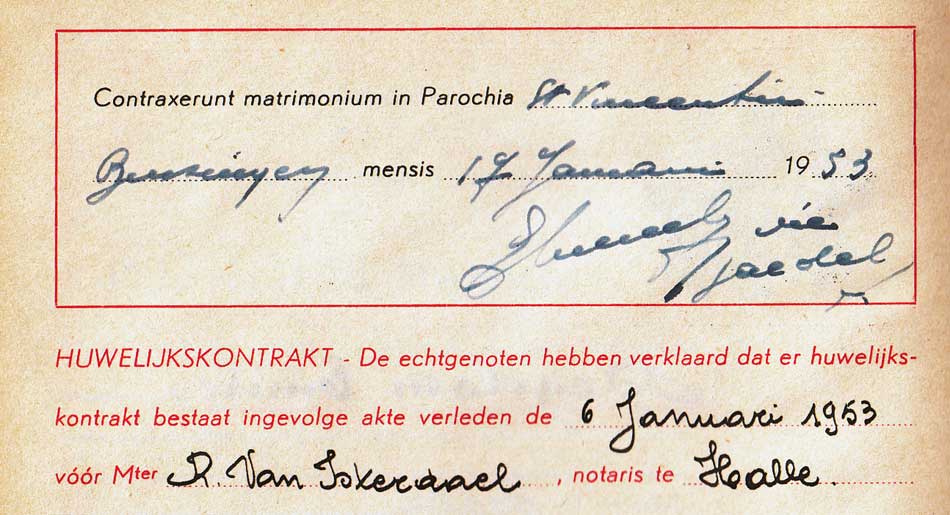 Contraxerunt matrimonium in Parochia St Vincentius
Buizingen mensis 17 Januarii 1953
HUWELIJKSKONTRAKT - De echtgenoten hebben verklaard dat er huwelijks-
kontrakt bestaat ingevolge akte verleden de 6 Januari 1953
vóór Mter R. Van Iskerdael, notaris te Halle.